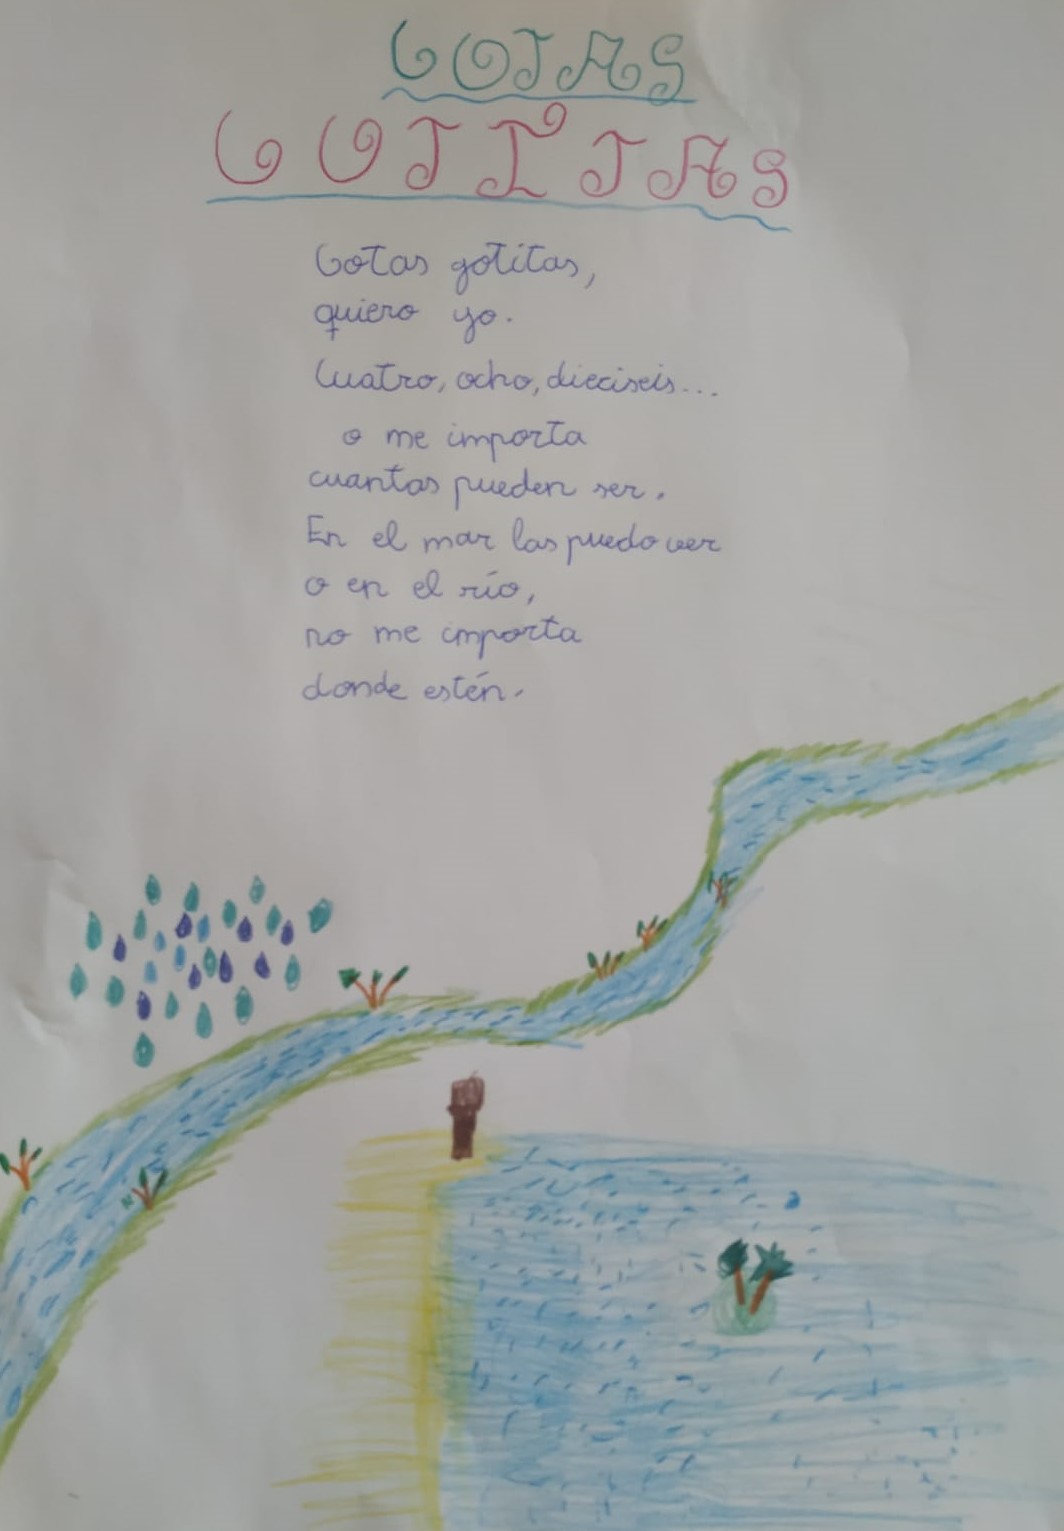 GOTAS
GOTITAS
Gotas gotitas,
quiero yo.
Cuatro, ocho, dieciseis...
o me importa
cuantas pueden ser.
En el mar las puedo ver
o en el río,
no me importa
donde estén.